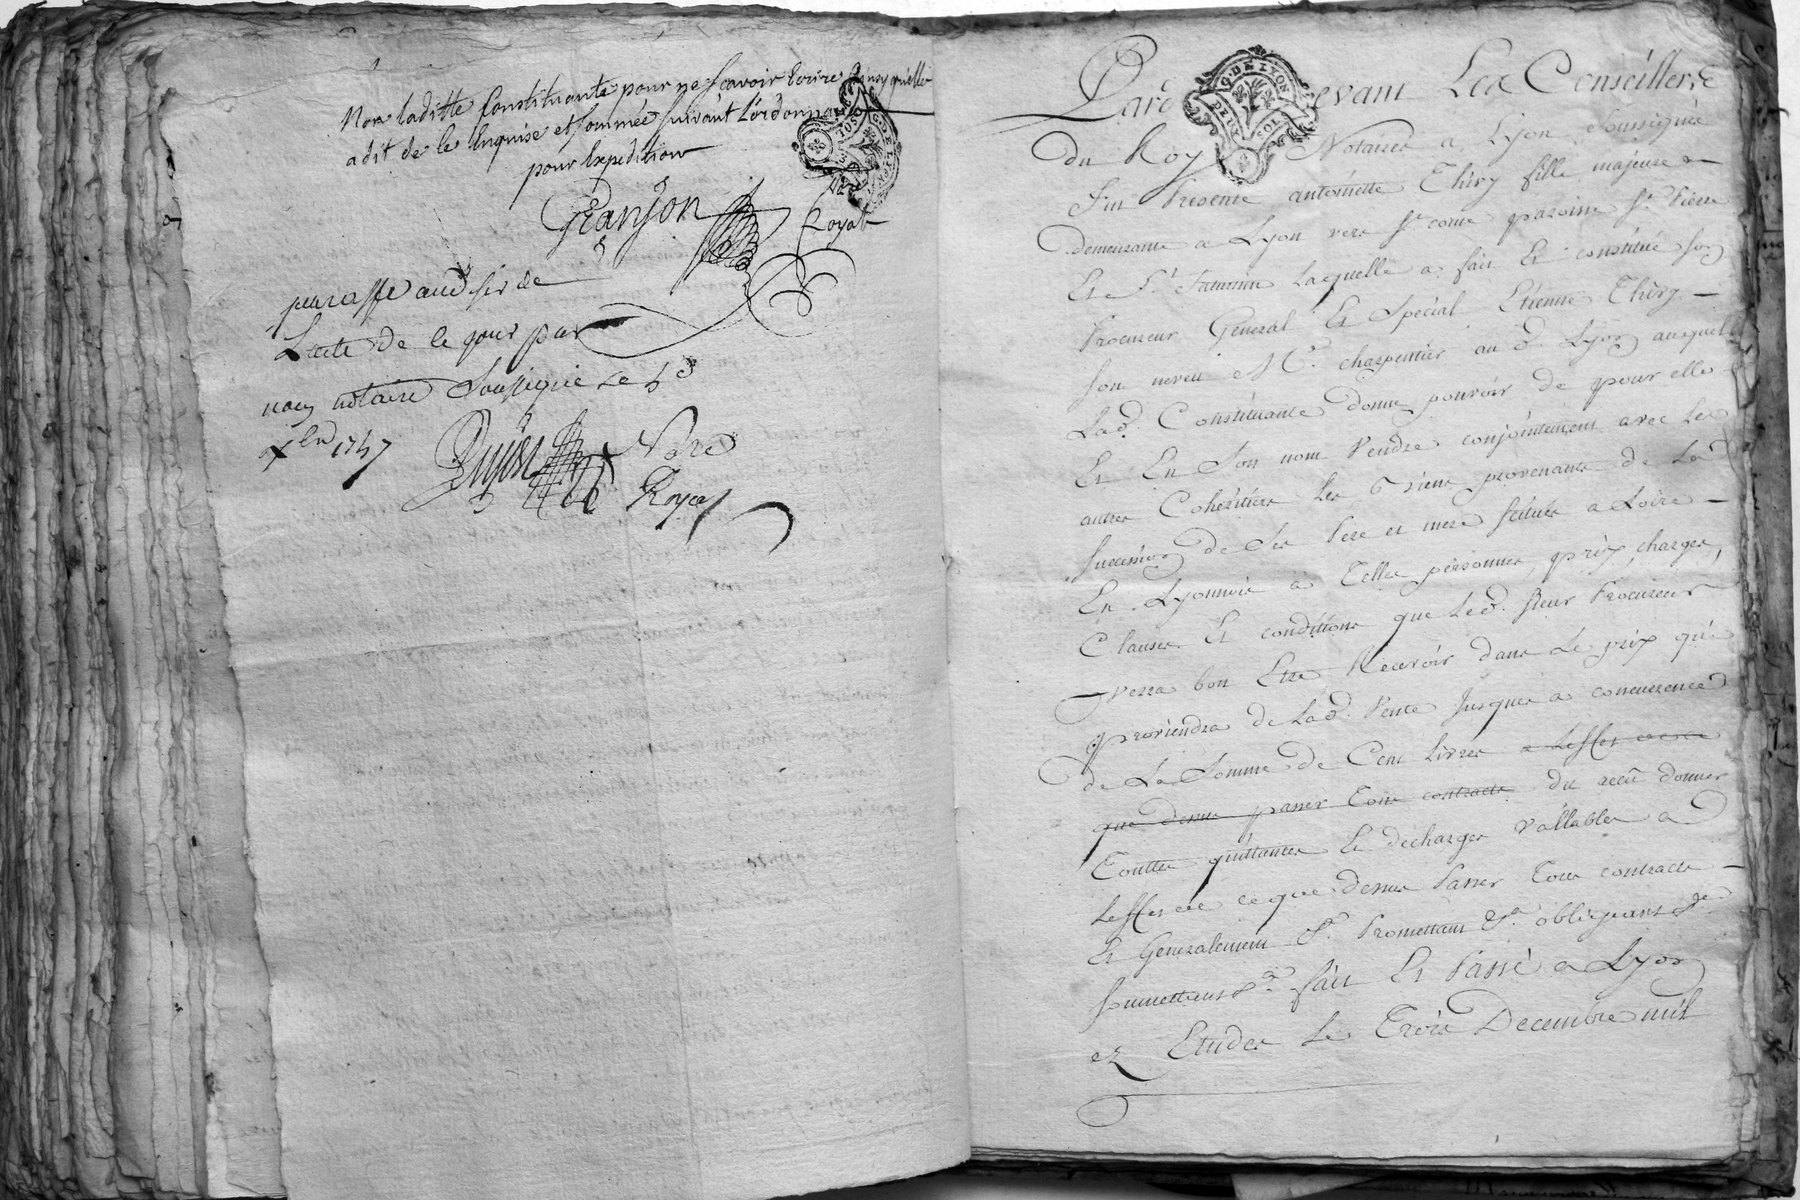 Non laditte Constituante pour ne scavoir Ecrire ainsy quelle
a dit de ce Enquise et sommée suivant L'ordonnance
pour Expedition
Granjon
Royal
paraffé au desir de
Lacte de ce jour par
nous notaire soussigné ce 5e
Xbre 1747
Nore
Royal
G. DE LYON
DEUX SOLS
Pardevant Les Conseillers
du Roy Notaires a Lyon soussignés
fut Presente antoinette Thiry fille majeure
demeurante a Lyon vers St. come paroisse St. Pierre
Et St. Saturnin Laquelle a fait Et constitué son
Procureur General Et Special Etienne Thiry
son neveu Me. charpentier aud. Lyon auquel
Lad. Constituante donne pouvoir de pour elle
Et En Son nom Vendre conjointement avec Les
autres Coheritiers Les provenants de La
succession de Ses Pere et mere scitués a Loire
En Lyonnois a Telles personnes, prix, charges,
Clauses Et conditions que Led. sieur Procureur
verra bon Etre Recevoir dans Le prix qui
proviendra de Lad. Vente Jusques a concurrence
de La Somme de Cent Livres a Leffet
que dessus passer Tous contracts du receu donner
Touttes quittances Et decharges Vallables a
Leffet de ce que dessus Passer Tous contracts
Et Generalement &a. Promettant &a. obligeant &a.
soumettant &a. fait Et Passé a Lyon
ez Etudes Le Trois Decembre mil